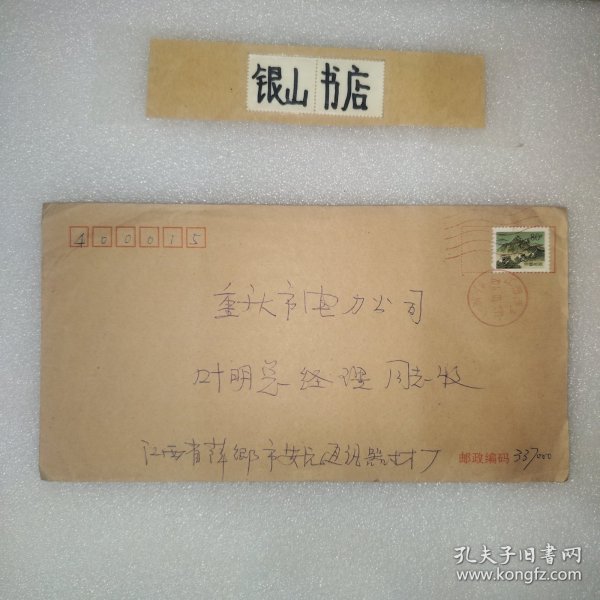 银山书店
400015
80分
重庆市电力公司
叶明总经理同志收
江西省萍乡市 通讯器材厂
邮政编码 337000
孔夫子旧书网
www.kongfz.com